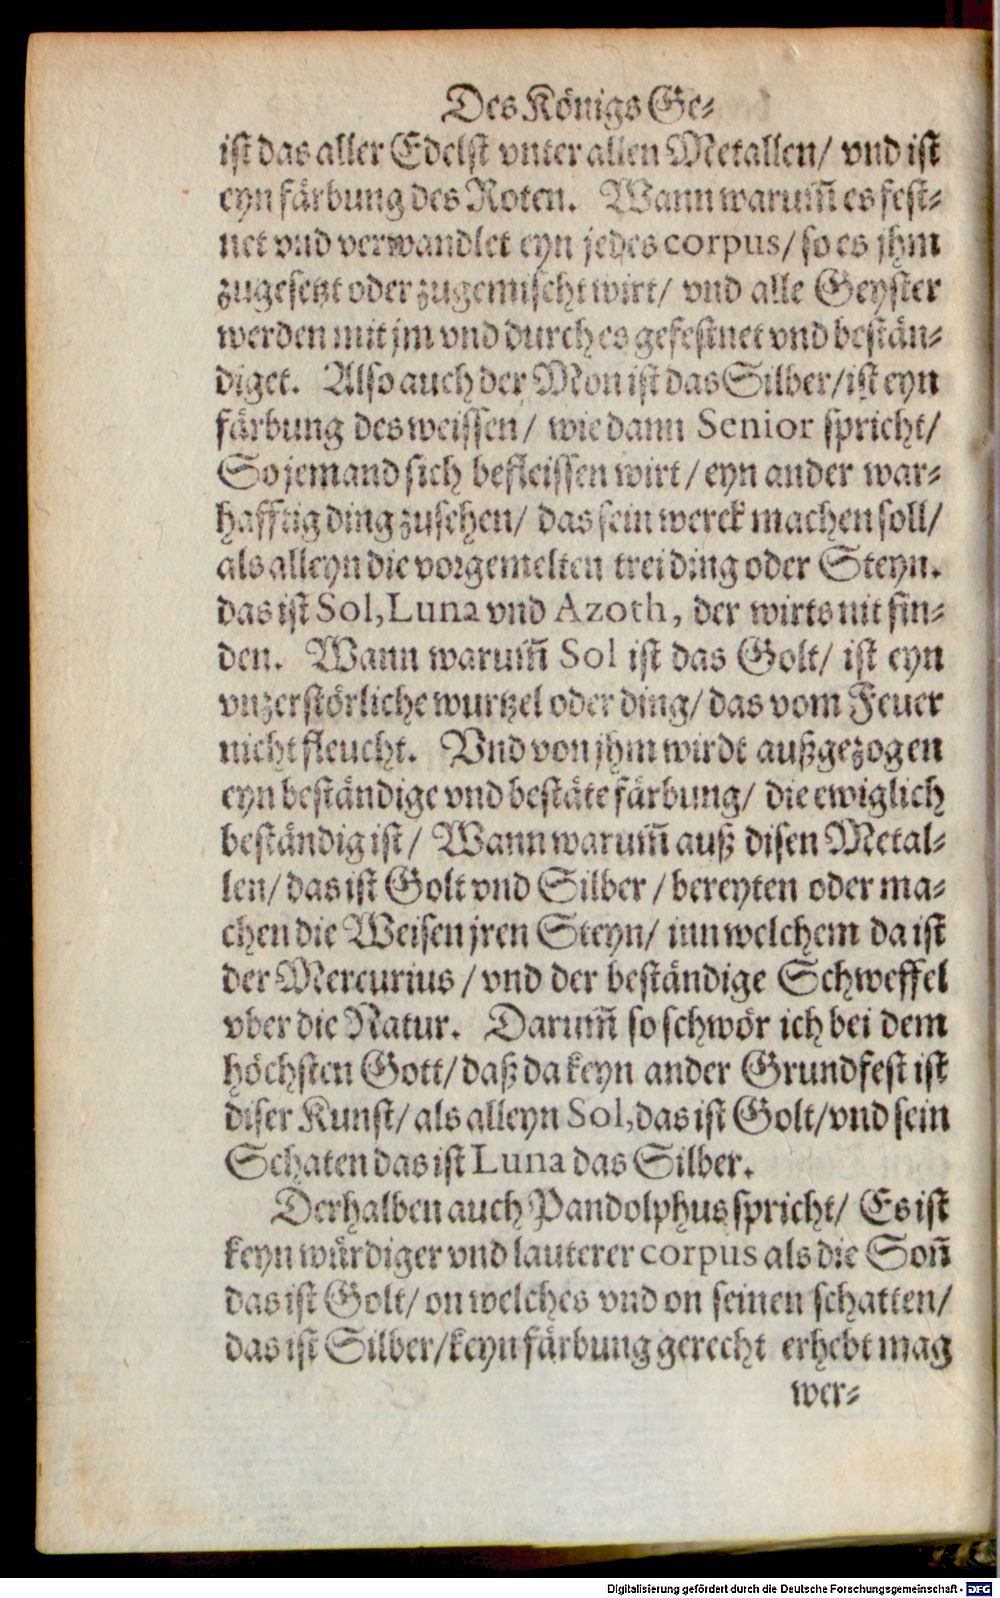 Des Königs Ge⸗
ist das aller Edelst vnter allen Metallen/ vnd ist
eyn färbung des Roten. Wann warum̃ es fest⸗
net vnd verwandlet eyn jedes corpus/ so es jhm
zugesetzt oder zugemischt wirt/ vnd alle Geyster
werden mit jm vnd durch es gefestnet vnd bestän⸗
diget. Also auch der Mon ist das Silber/ ist eyn
färbung des weissen/ wie dann Senior spricht/
So jemand sich befleissen wirt/ eyn ander war⸗
hafftig ding zusehen/ das sein werck machen soll/
als alleyn die vorgemelten trei ding oder Steyn.
das ist Sol, Luna vnd Azoth, der wirts nit fin⸗
den. Wann warum̃ Sol ist das Golt/ ist eyn
vnzerstörliche wurtzel oder ding/ das vom Feuer
nicht fleucht. Vnd von jhm wirdt außgezogen
eyn beständige vnd bestäte färbung/ die ewiglich
beständig ist/ Wann warum̃ auß disen Metal⸗
len/ das ist Golt vnd Silber/ bereyten oder ma⸗
chen die Weisen jren Steyn/ inn welchem da ist
der Mercurius/ vnd der beständige Schweffel
vber die Natur. Darum̃ so schwör ich bei dem
höchsten Gott/ daß da keyn ander Grundfest ist
diser Kunst/ als alleyn Sol, das ist Golt/ vnd sein
Schaten das ist Luna das Silber.
Derhalben auch Pandolphus spricht/ Es ist
keyn würdiger vnd lauterer corpus als die Son̄
das ist Golt/ on welches vnd on seinen schatten/
das ist Silber/ keyn färbung gerecht erhebt mag
wer⸗
Digitalisierung gefördert durch die Deutsche Forschungsgemeinschaft - DFG